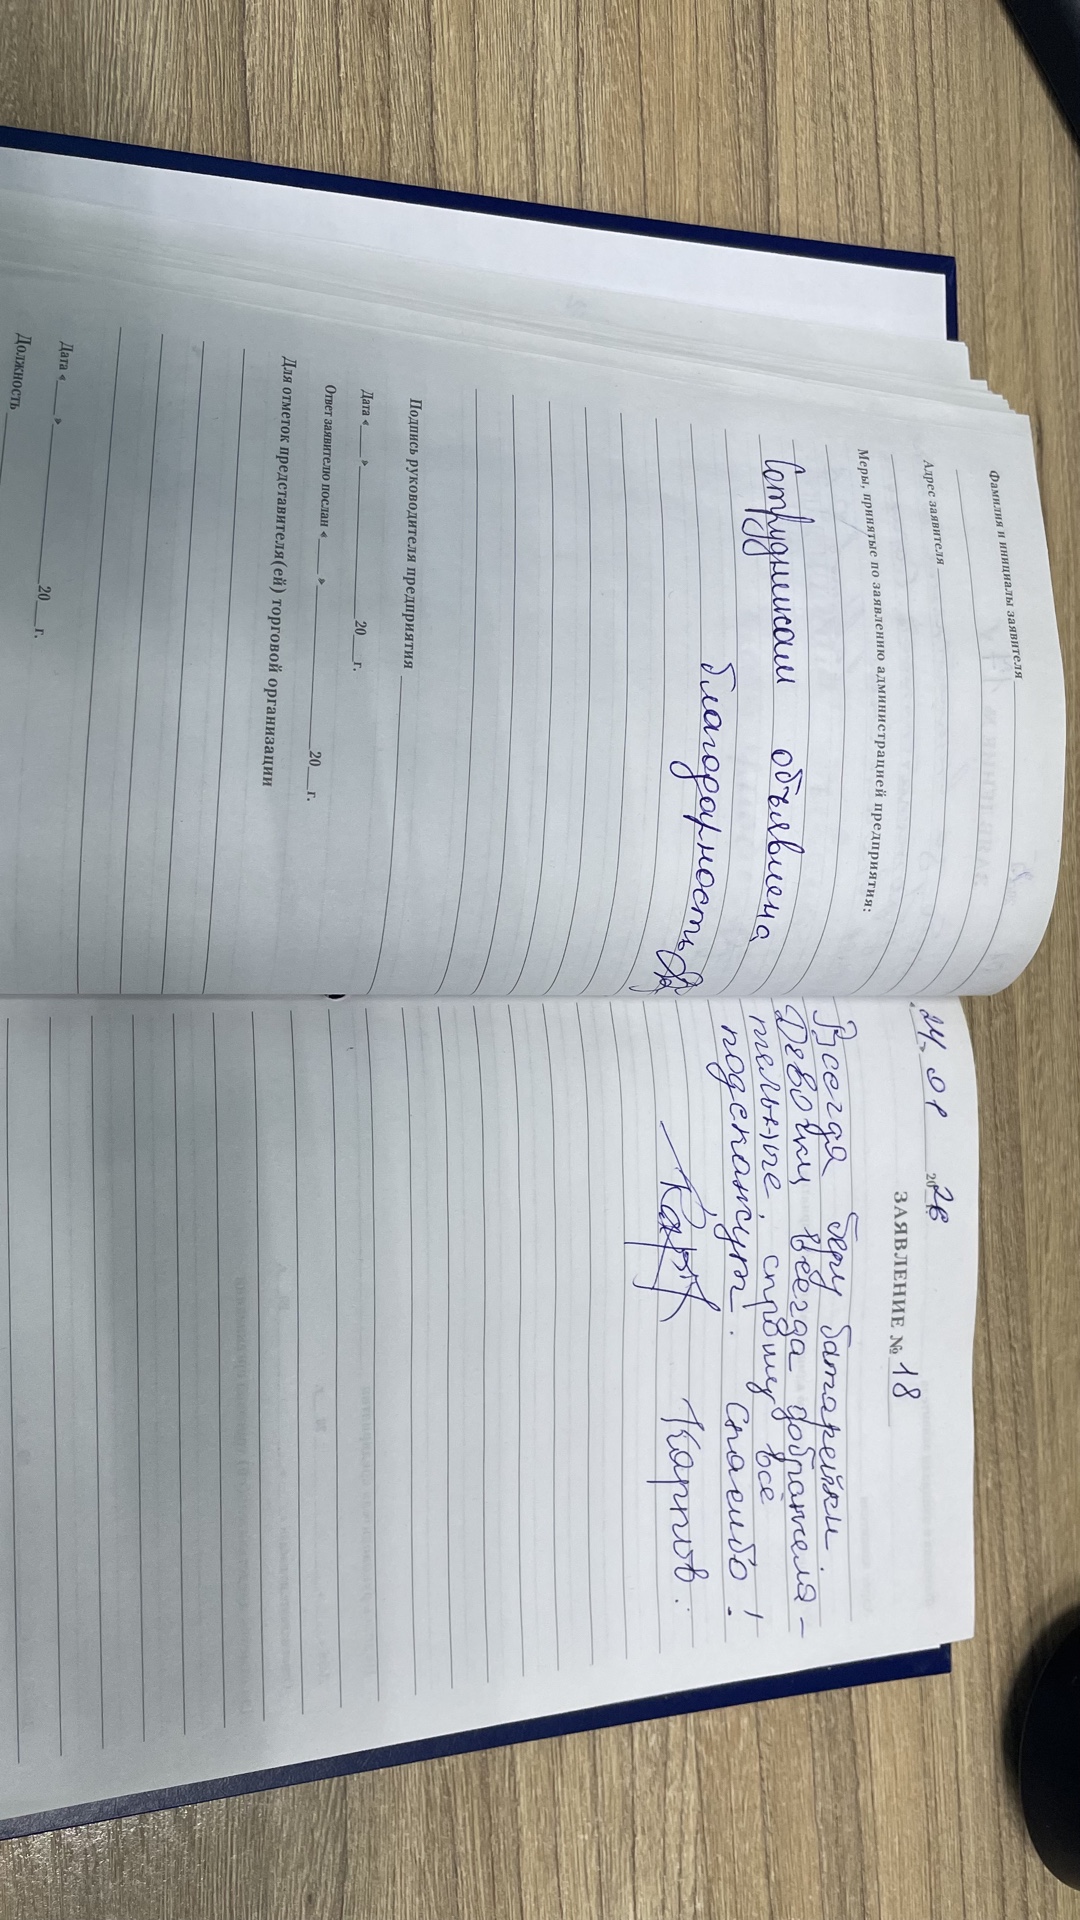 Фамилия и инициалы заявителя
Адрес заявителя
Меры, принятые по заявлению администрацией предприятия:
Сотрудникам объявлена
благодарность
Подпись руководителя предприятия
Дата « » 20 г.
Ответ заявителю послан « » 20 г.
Для отметок представителя(ей) торговой организации
Дата « » 20 г.
Должность
« 24 » 01 2026
ЗАЯВЛЕНИЕ № 18
Всегда беру батарейки.
Девочки всегда доброжела-
тельные, спрошу всё
подскажут. Спасибо!
Карпов.